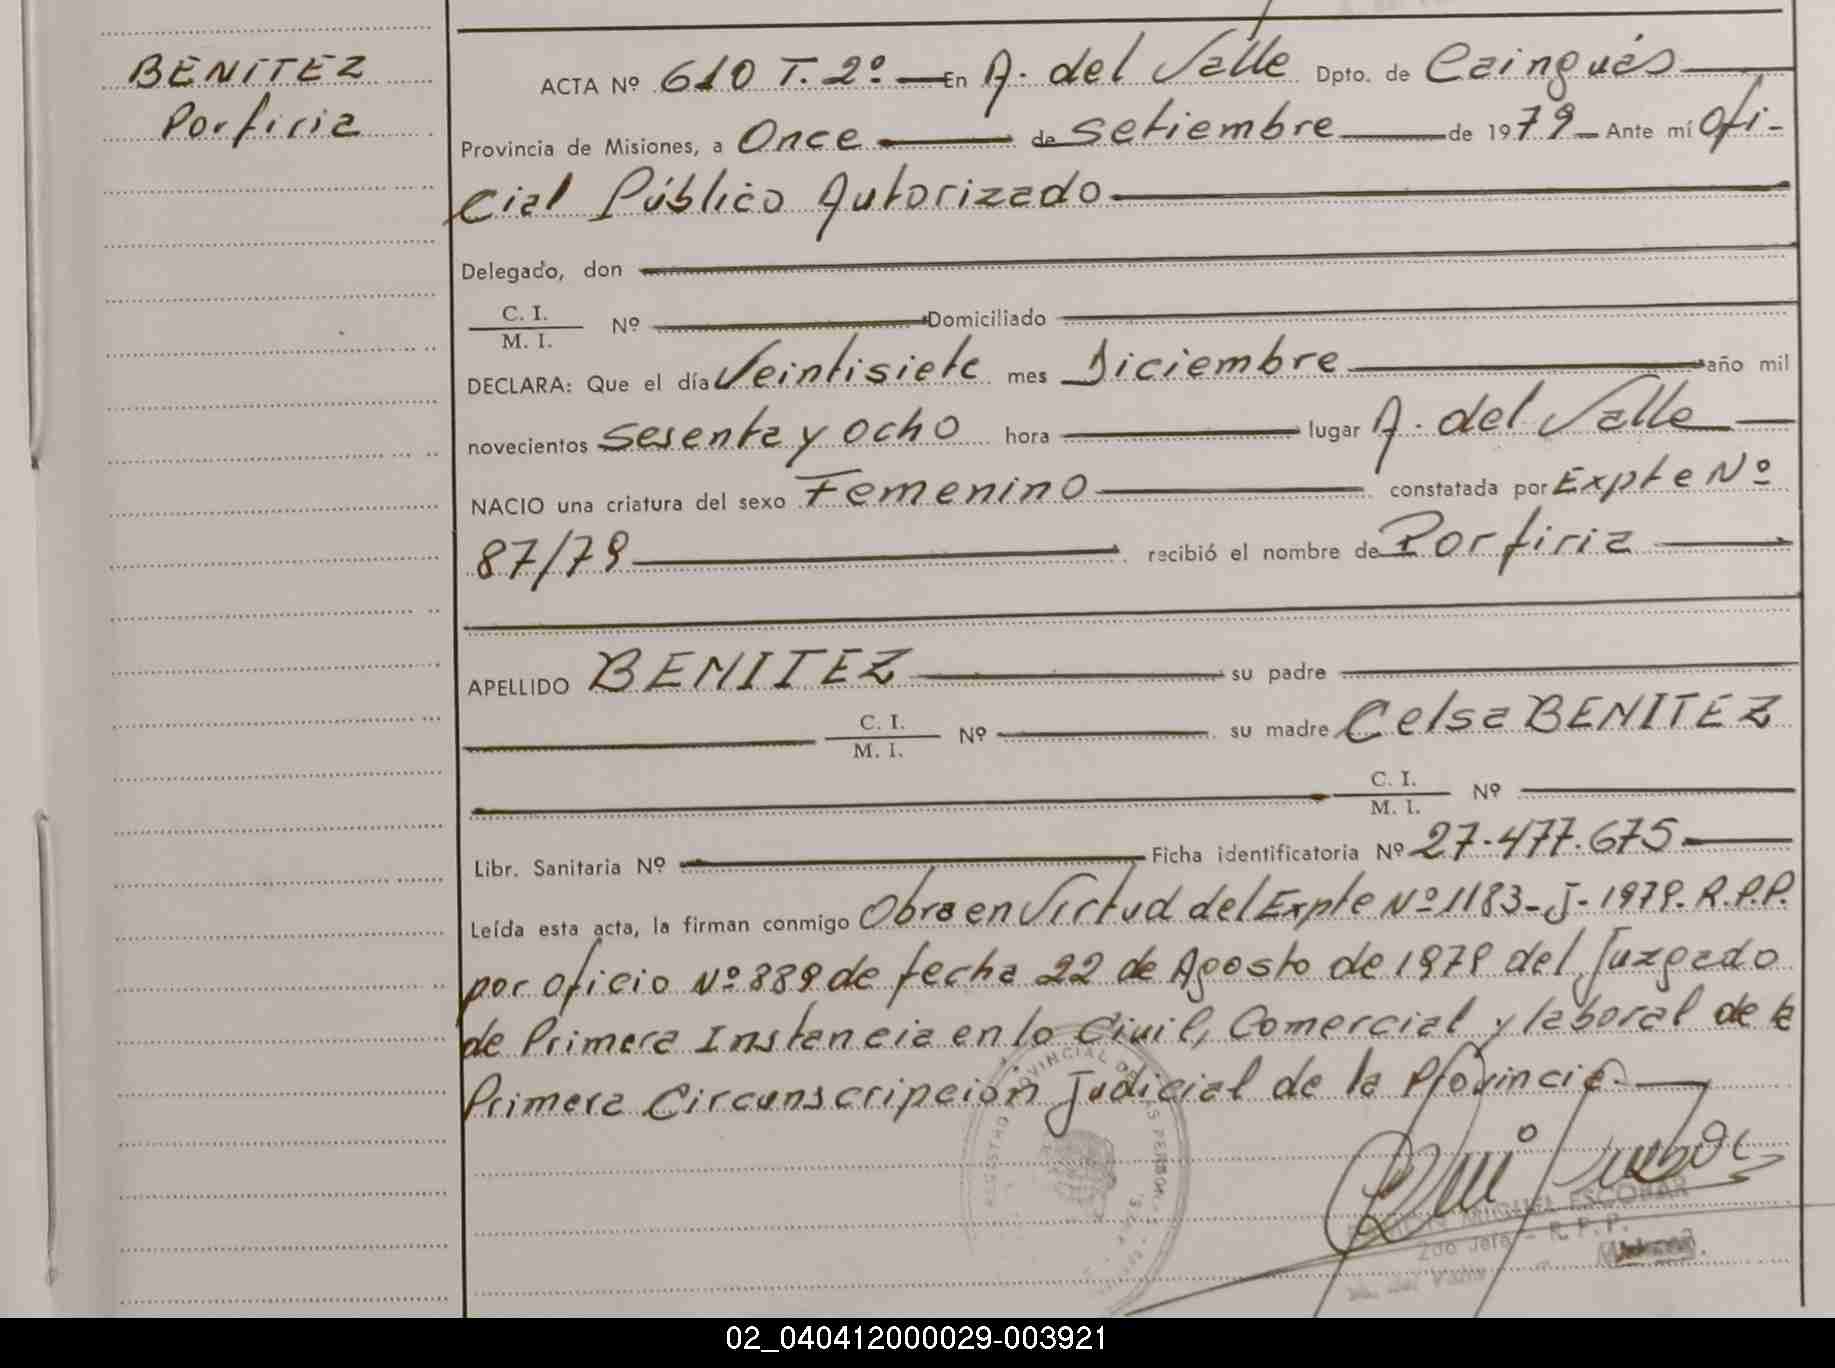 BENITEZ
Porfiria
ACTA Nº 610 T. 2º En A. del Valle Dpto. de Cainguás
Provincia de Misiones, a Once de setiembre de 1979 Ante mí Ofi-
cial Público Autorizado
Delegado, don
C. I.
M. I. Nº Domiciliado
DECLARA: Que el día Veintisiete mes Diciembre año mil
novecientos sesenta y ocho hora lugar A. del Valle
NACIO una criatura del sexo Femenino constatada por Expte Nº
87/79 recibió el nombre de Porfiria
APELLIDO BENITEZ su padre
C. I.
M. I. Nº su madre Celsa BENITEZ
C. I.
M. I. Nº
Libr. Sanitaria Nº Ficha identificatoria Nº 27.477.675
Leída esta acta, la firman conmigo Obra en Virtud del Expte Nº 1183-J-1979. R.P.P.
por oficio Nº 889 de fecha 22 de Agosto de 1979 del Juzgado
de Primera Instancia en lo Civil, Comercial y laboral de la
Primera Circunscripción Judicial de la Provincia.
REGISTRO PROVINCIAL DE LAS PERSONAS
MIGUEL ESCOBAR
2do Jefe - R. P. P.
A. del Valle
02_040412000029-003921